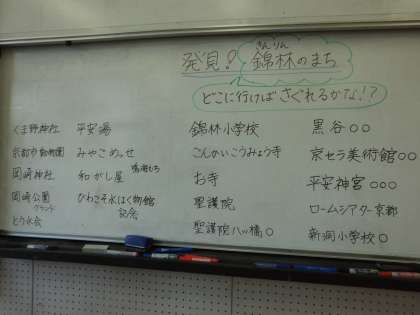 発見!
きんりん
錦林のまち
どこに行けばさぐれるかな!?
くま野神社
京都市動物園
岡崎神社
岡崎公園
グランド
とう水会
平安湯
みやこめっせ
和がし屋
びわこそ水はく物館
記念
錦林小学校
こんかいこうみょう寺
お寺
聖護院
聖護院八ッ橋○
黒谷○○
京セラ美術館○○
平安神宮○○○
ロームシアター京都
新洞小学校○